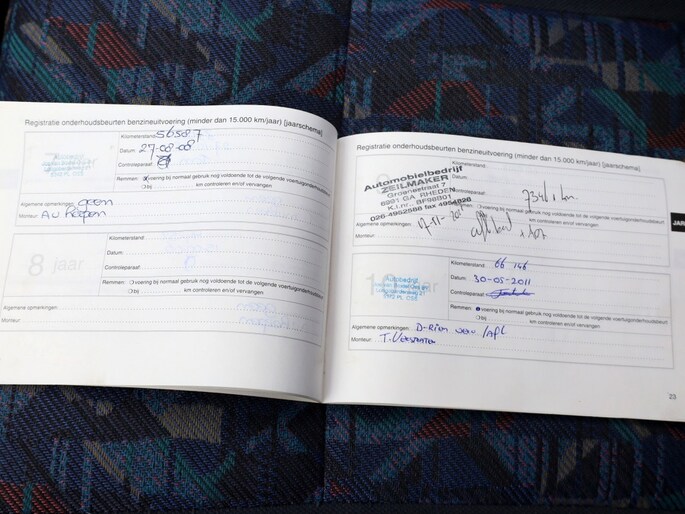 Registratie onderhoudsbeurten benzineuitvoering (minder dan 15.000 km/jaar) [jaarschema]
Kilometerstand: 56587
Datum: 27-08-08
Controleparaaf:
Remmen: voering bij normaal gebruik nog voldoende tot de volgende voertuigonderhoudsbeurt
bij km controleren en/of vervangen.
Algemene opmerkingen: geen
Monteur:
8 jaar
Kilometerstand:
Datum:
Controleparaaf:
Remmen: voering bij normaal gebruik nog voldoende tot de volgende voertuigonderhoudsbeurt
bij km controleren en/of vervangen.
Algemene opmerkingen:
Monteur:
Registratie onderhoudsbeurten benzineuitvoering (minder dan 15.000 km/jaar) [jaarschema]
Automobielbedrijf
ZEILMAKER
Groenestraat 7
6991 GA RHEDEN
K.I.nr. BF98801
026-4952568 fax 4954828
km.
voering bij normaal gebruik nog voldoende tot de volgende voertuigonderhoudsbeurt
km controleren en/of vervangen.
Algemene opmerkingen:
Monteur:
JAR
Kilometerstand: 66 146
Datum: 30-05-2011
Controleparaaf:
Remmen: voering bij normaal gebruik nog voldoende tot de volgende voertuigonderhoudsbeurt
bij km controleren en/of vervangen.
Algemene opmerkingen: D-Riem verv./Apl
Monteur: T. Verstraten
23